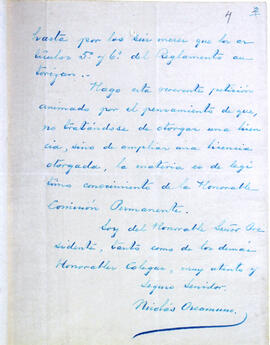 4
hasta por los seis meses que los ar
tículos 5º y 6º del Reglamento au
torizan.-
Hago esta reverente petición
animado por el pensamiento de que,
no tratándose de otorgar una licen
cia, sino de ampliar una licencia
otorgada, la materia es de legí
timo conocimiento de la Honorable
Comisión Permanente.
Soy del Honorable Señor Pre
sidente, tanto como de los demás
Honorables Colegas, muy atento y
Seguro Servidor.
Nicolás Oreamuno.